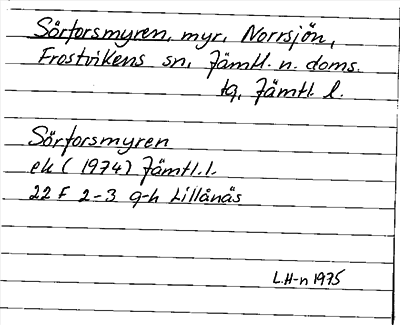 Sörforsmyren, myr, Norrsjön,
Frostvikens sn, Jämtl. n. doms.
tg, Jämtl. l.
Sörforsmyren
ek (1974) Jämtl. l.
22 F 2-3 g-h Lillånäs
L.H-n 1975